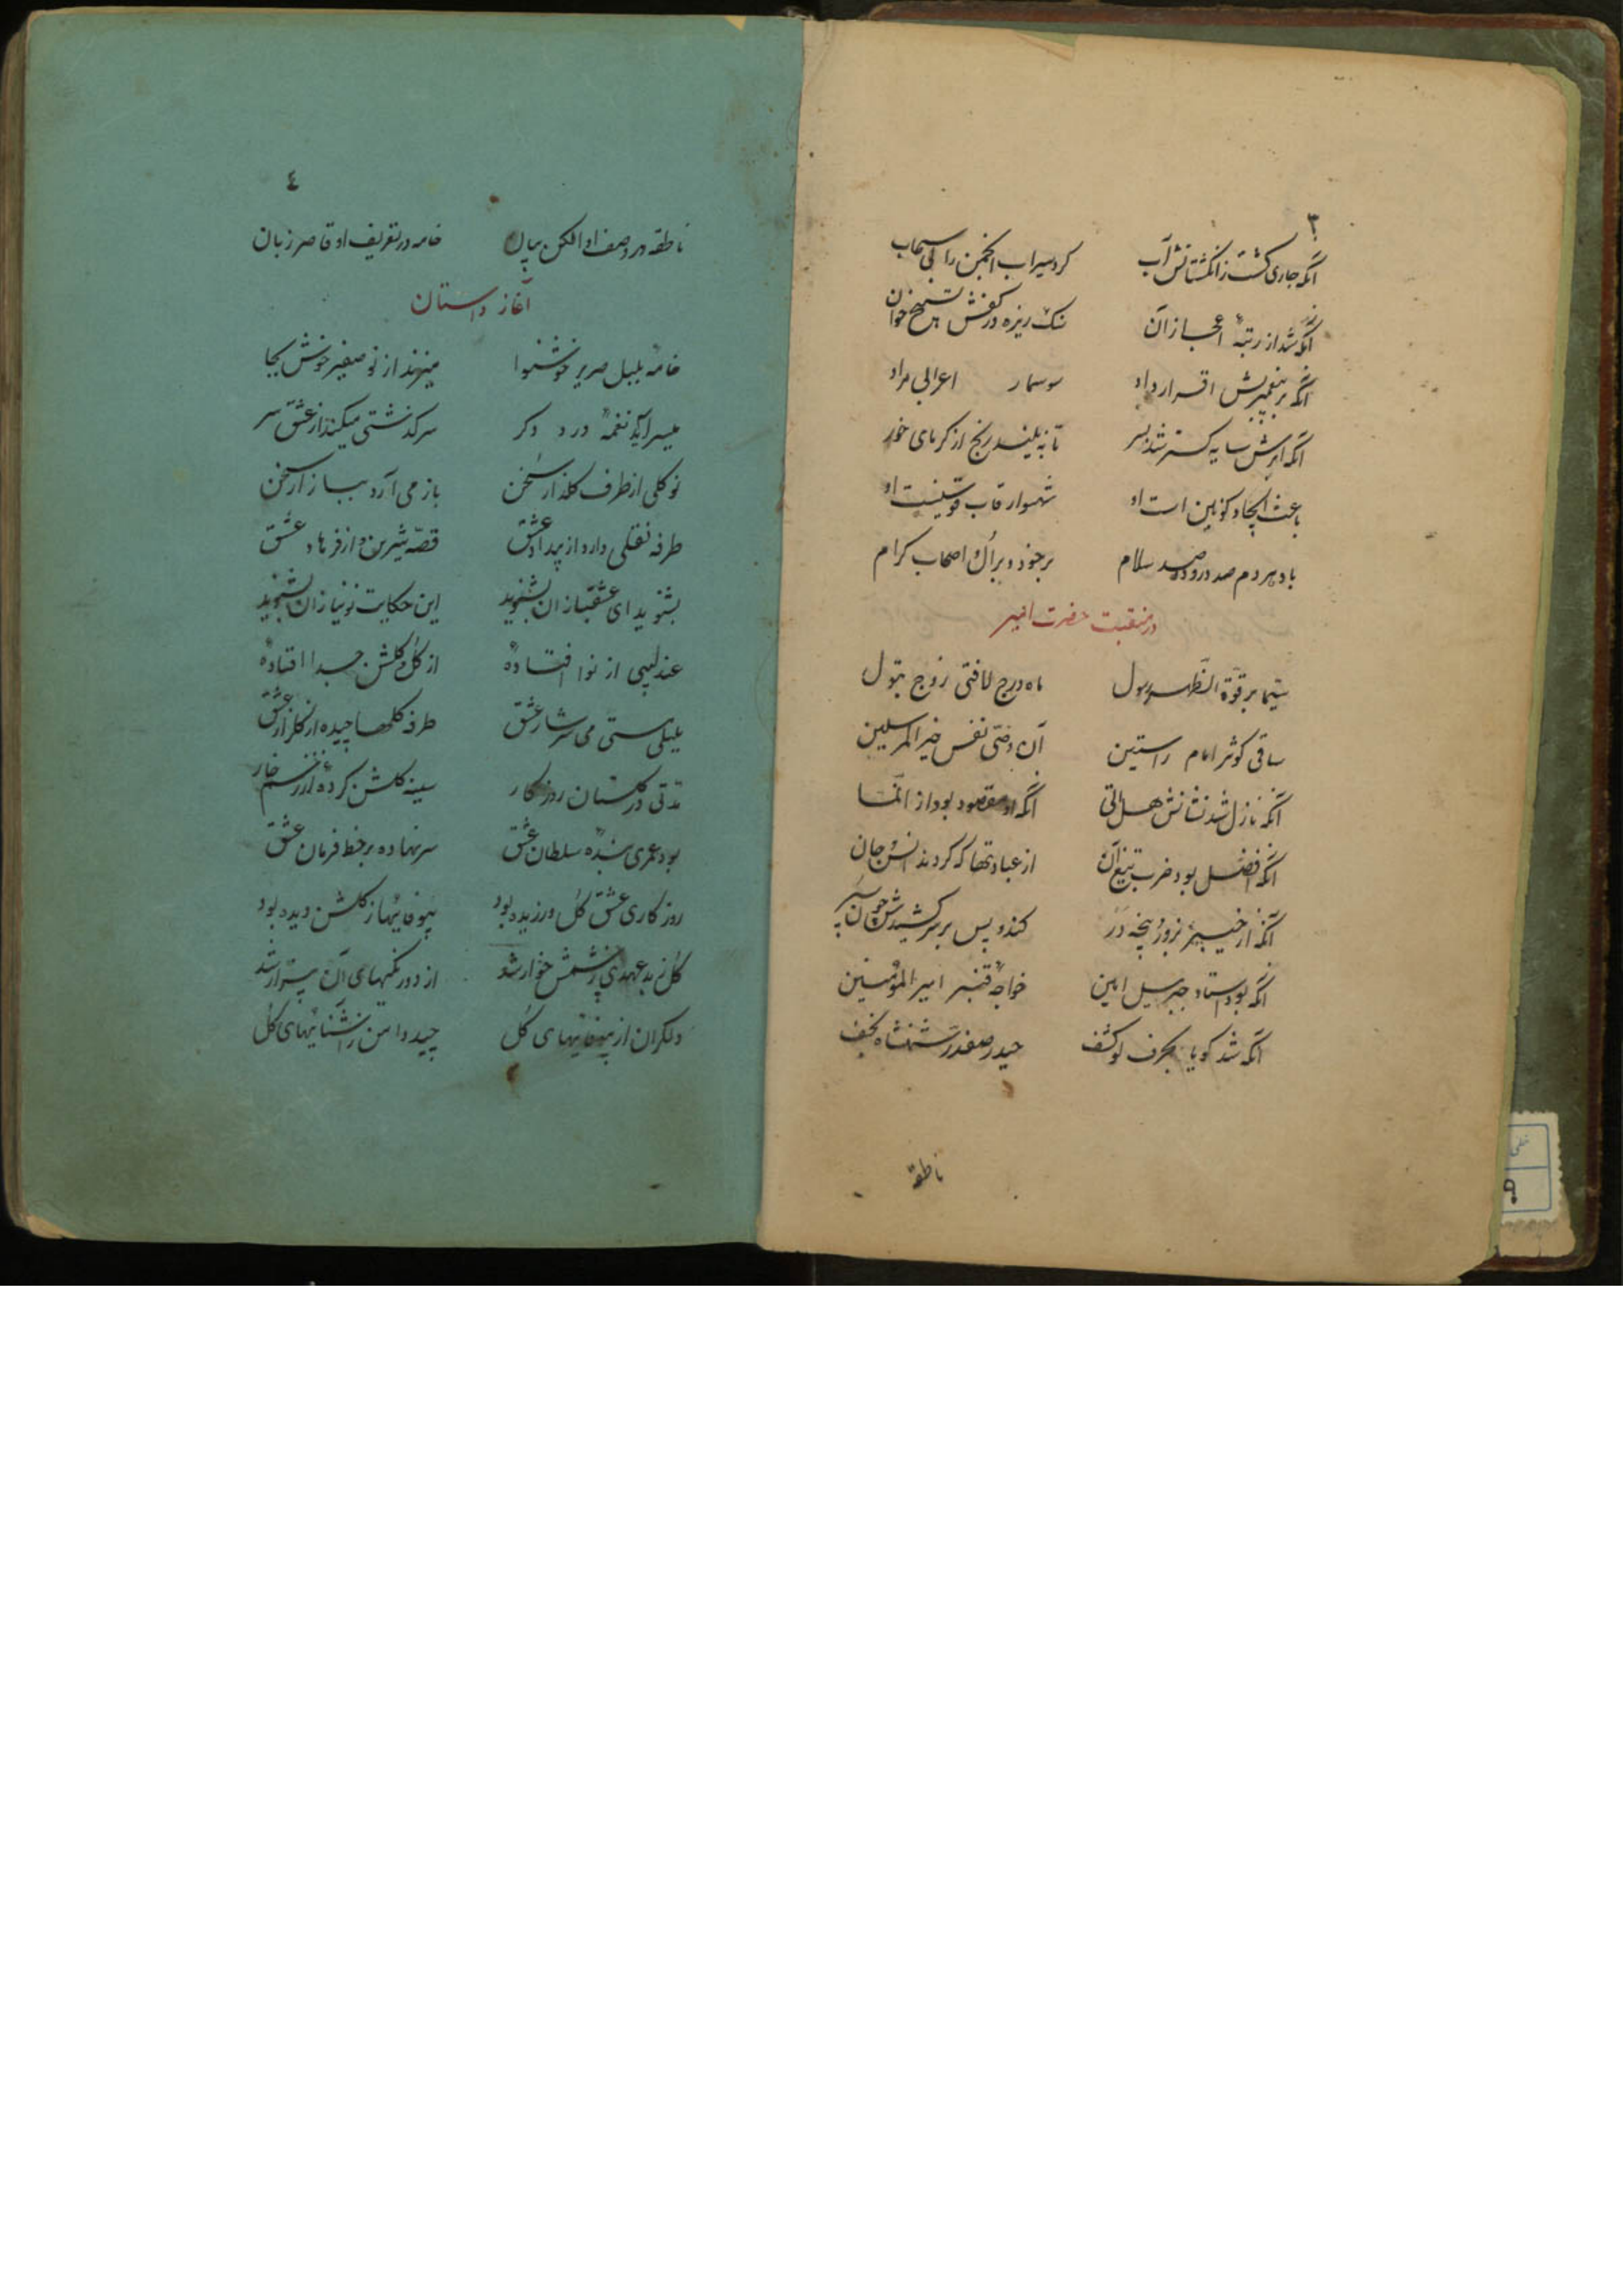 ۳
آنکه جاری گشت ز انگشتانش آب کرد سیراب انجمن را بی سحاب
آنکه شد از رتبهٔ اعجاز آن سنک ریزه در کفش تسبیح خوان
آنکه بر پیغمبریش اقرار داد سوسمار اعرابی مراد
آنکه ابرش سایه گستر شد بسر تا نه بیند رنج از گرمای خور
باعث ایجاد کونین است او شهسوار قاب قوسینست او
باد هر دم صد درود و صد سلام بر خود و بر آل و اصحاب کرام
در منقبت حضرت امیر
سیما بر قوّة الظّهر رسول ماه درج لافتی زوج بتول
ساقی کوثر امام راستین آن وصی نفس خیر المرسلین
آنکه نازل شد نشانش هل اتی آنکه او مقصود بود از انّما
آنکه افضل بود ضرب تیغ آن از عبادتها که کردند انس و جان
آنکه از خیبر بزور پنجه در کند و پس بر سر کشیدش چون سپر
آنکه بود استاد جبرییل امین خواجهٔ قنبر امیر المؤمنین
آنکه شد کویا بحرف لو کشف حیدر صفدر شهنشاه نجف
ناطقه
٤
ناطقه در وصف او الکن بیان خامه در تعریف او قاصر زبان
آغاز داستان
خامهٔ بلبل صریر خوشنوا میزند از نو صفیر خوش بجا
میسراید نغمهٔ درد دکر سرکذشتی میکند از عشق سر
نو کلی از طرف کلذار سخن باز می آرد ببازار سخن
طرفه نقلی دارد از بیداد عشق قصّه شیرین و از فرهاد عشق
بشنوید ای عشقبازان بشنوید این حکایت نو نیازان بشنوید
عندلیبی از نوا افتادهٔ از کل و کلشن جدا افتادهٔ
بلبلی مستی می سرشار عشق طرفه کلها چیده از کلزار عشق
مدتی در کلستان روزکار سینه کلشن کرده از زخم خار
بود عمری بندهٔ سلطان عشق سر نهاده بر خط فرمان عشق
روزکاری عشق کل ورزیده بود بیوفائیها ز کلشن دیده بود
کل ز بد عهدی بچشمش خوار شد از دو رنکیهای آن بیزار شد
دلکران از بیوفائیهای کل چید دامن ز آشنائیهای کل